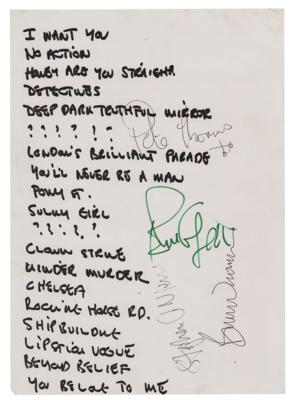 I WANT YOU
NO ACTION
HONEY ARE YOU STRAIGHT
DETECTIVES
DEEP DARK TRUTHFUL MIRROR
? ? ? ? ? ?
Pete Thomas
LONDON'S BRILLIANT PARADE
YOU'LL NEVER BE A MAN
PONY ST.
SULKY GIRL
? ? ? ? ?
CLOWN STRIKE
KINDER MURDER
CHELSEA
ROCKING HORSE RD.
SHIPBUILDING
LIPSTICK VOGUE
BEYOND BELIEF
YOU BELONG TO ME
Bruce Thomas